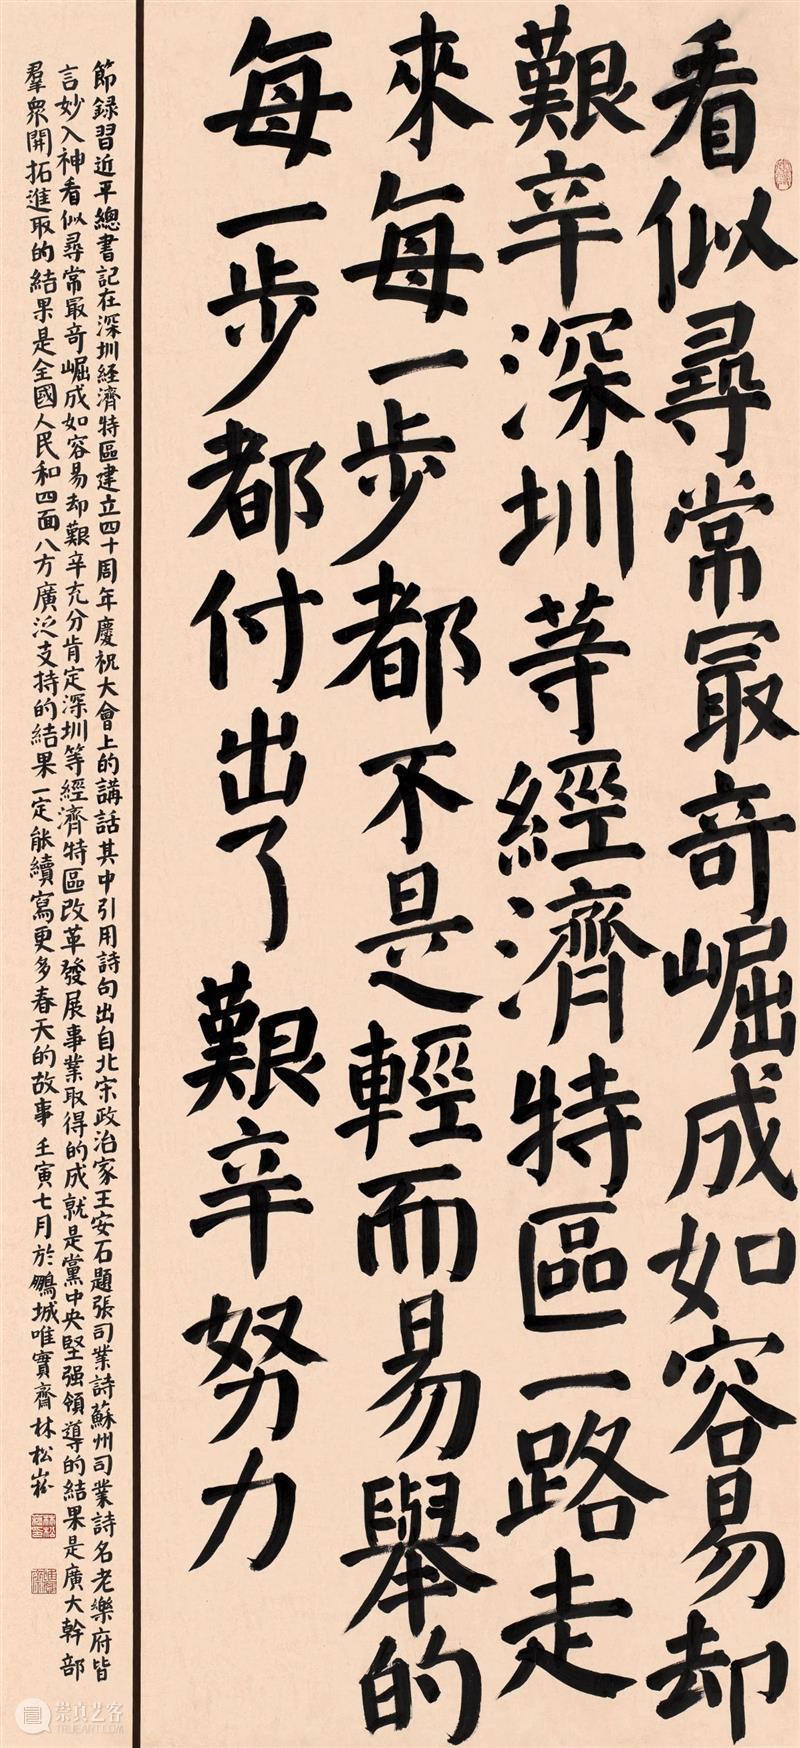 看似尋常最奇崛成如容易却
艱辛深圳等經濟特區一路走
來每一步都不是輕而易舉的
每一步都付出了艱辛努力
節録習近平總書記在深圳經濟特區建立四十周年慶祝大會上的講話其中引用詩句出自北宋政治家王安石題張司業詩蘇州司業詩名老樂府皆
言妙入神看似尋常最奇崛成如容易却艱辛充分肯定深圳等經濟特區改革發展事業取得的成就是黨中央堅强領導的結果是廣大幹部
羣衆開拓進取的結果是全國人民和四面八方廣泛支持的結果一定能續寫更多春天的故事 壬寅七月於鵬城唯實齋林松崧
崇真艺客
TRUEART.COM